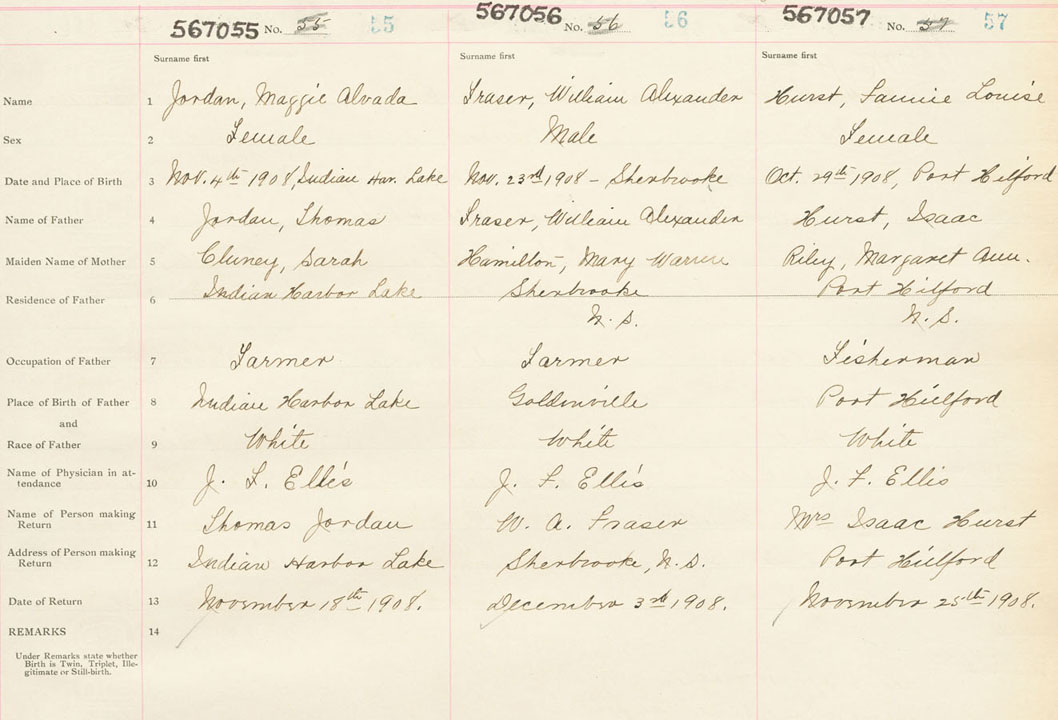 567055 No. 55 55 567056 No. 56 56 567057 No. 57 57
Surname first Surname first Surname first
Name 1 Jordan, Maggie Alvada Fraser, William Alexander Hurst, Fannie Louise
Sex 2 Female Male Female
Date and Place of Birth 3 Nov. 4th 1908, Indian Har. Lake Nov. 23rd 1908 - Sherbrooke Oct. 29th 1908, Port Hilford
Name of Father 4 Jordan, Thomas Fraser, William Alexander Hurst, Isaac
Maiden Name of Mother 5 Cluney, Sarah Hamilton, Mary Warren Riley, Margaret Ann.
Residence of Father 6 Indian Harbor Lake Sherbrooke Port Hilford
N. S. N. S.
Occupation of Father 7 Farmer Farmer Fisherman
Place of Birth of Father 8 Indian Harbor Lake Goldenville Port Hilford
and
Race of Father 9 White White White
Name of Physician in at-
tendance 10 J. F. Ellis J. F. Ellis J. F. Ellis
Name of Person making
Return 11 Thomas Jordan W. A. Fraser Mrs Isaac Hurst
Address of Person making
Return 12 Indian Harbor Lake Sherbrooke, N.S. Port Hilford
Date of Return 13 November 18th 1908. December 3rd 1908. November 25th 1908.
REMARKS 14
Under Remarks state whether
Birth is Twin, Triplet, Ille-
gitimate or Still-birth.